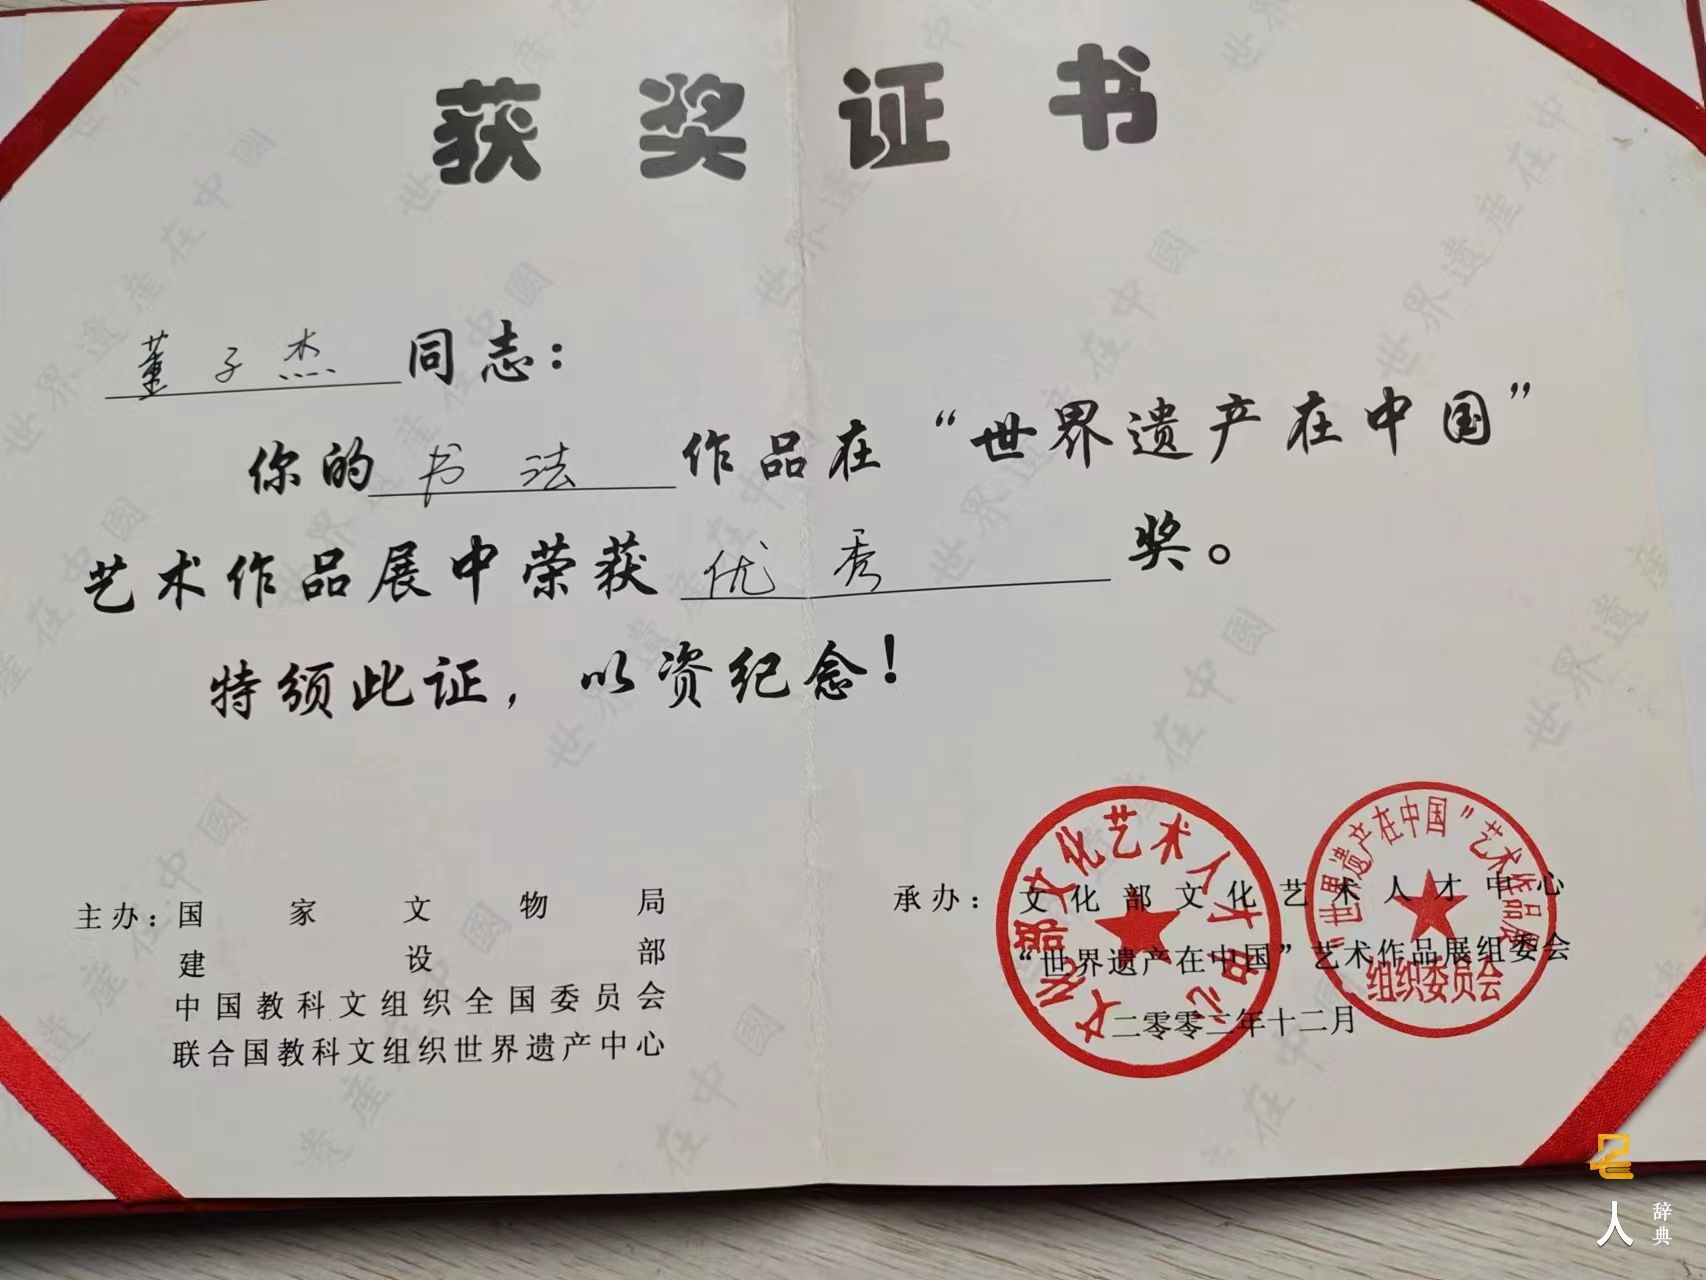 获奖证书
董子杰同志：
你的书法作品在“世界遗产在中国”
艺术作品展中荣获优秀奖。
特颁此证，以资纪念！
主办：国家文物局
建设部
中国教科文组织全国委员会
联合国教科文组织世界遗产中心
承办：文化部文化艺术人才中心
“世界遗产在中国”艺术作品展组委会
二零零年十二月
文化部文化艺术人才中心
“世界遗产在中国”艺术作品展
组织委员会
世界遺産在中國
人
辞典